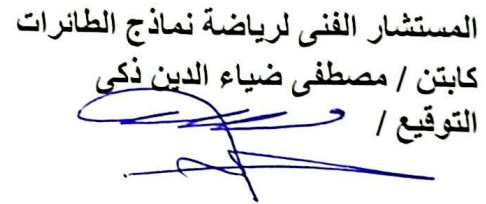 المستشار الفنى لرياضة نماذج الطائرات
كابتن / مصطفى ضياء الدين ذكى
التوقيع /